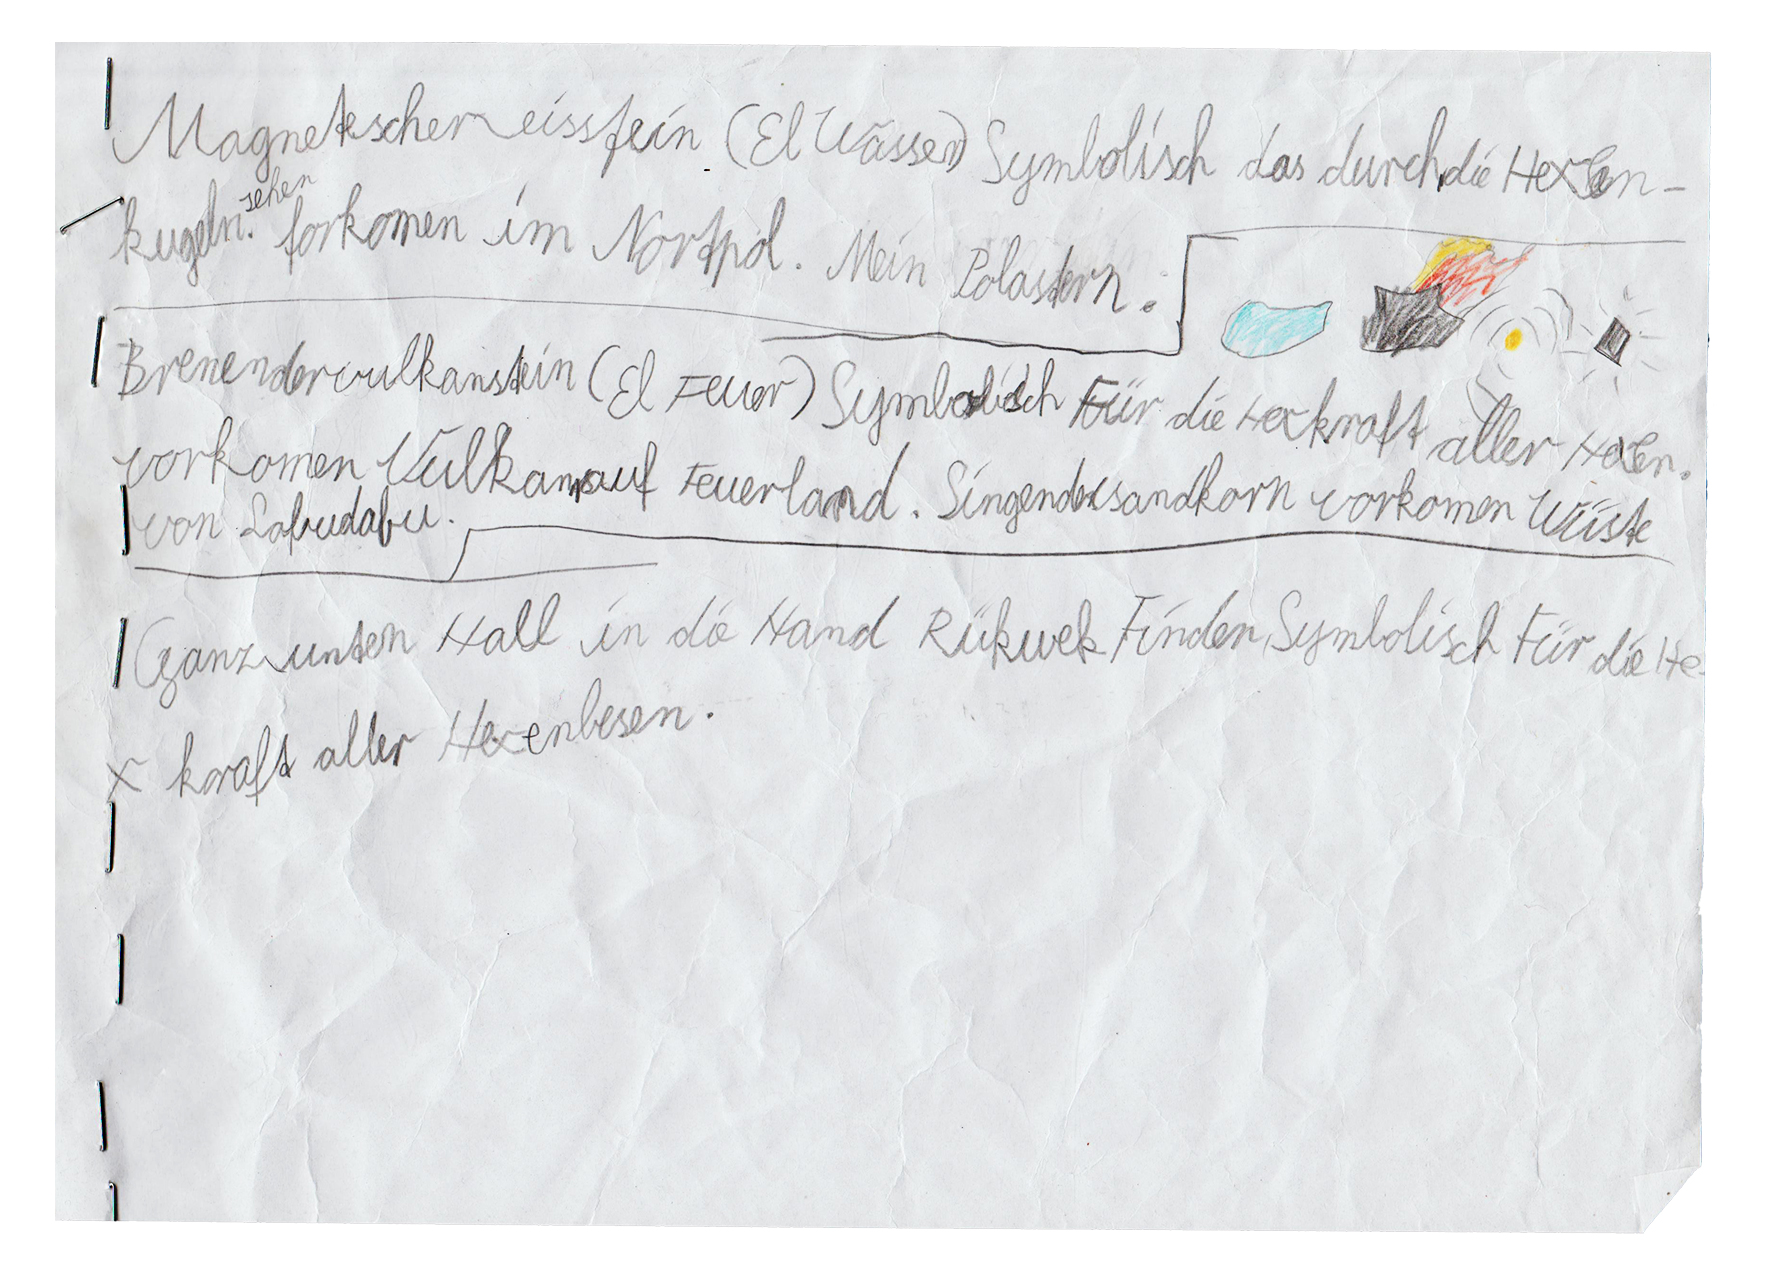 Magnetischer eisstein (El Wasser) Symbolisch das durch die Hexen-
kugeln. sehen forkomen im Nortpol. Mein Polastern.
Brenendervulkanstein (El Feuer) Symbolisch Für die Hexkraft aller Hexen.
vorkomen Vulkan auf Feuerland. Singendessandkorn vorkomen Wüste
von Labudabu.
Ganz unten Hall in die Hand Rükwek Finden, Symbolisch Für die He-
x kraft aller Hexenbesen.